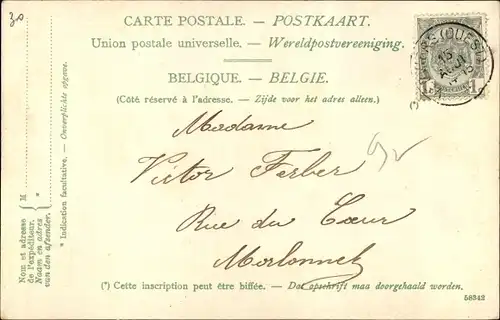 30
CARTE POSTALE. — POSTKAART.
Union postale universelle. — Wereldpostvereeniging.
BELGIQUE. — BELGIE.
(Côté réservé à l'adresse. — Zijde voor het adres alleen.)
Madame
Victor Ferber
Rue du Cœur
(*) Cette inscription peut être biffée. — Dat opschrift maa doorgehaald worden.
58342
Nom et adresse de l'expéditeur.
Naam en adres van den afzender.
M
*
* Indication facultative. — Onverplichte opgave.
(OUEST)
1c 1c